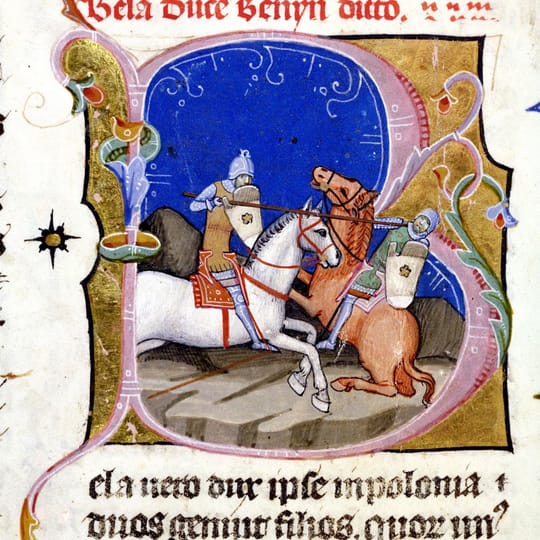 Bela Duce Benyn dicto.
B
ela uero dux ipse in polonia
duos genuit filios. quor